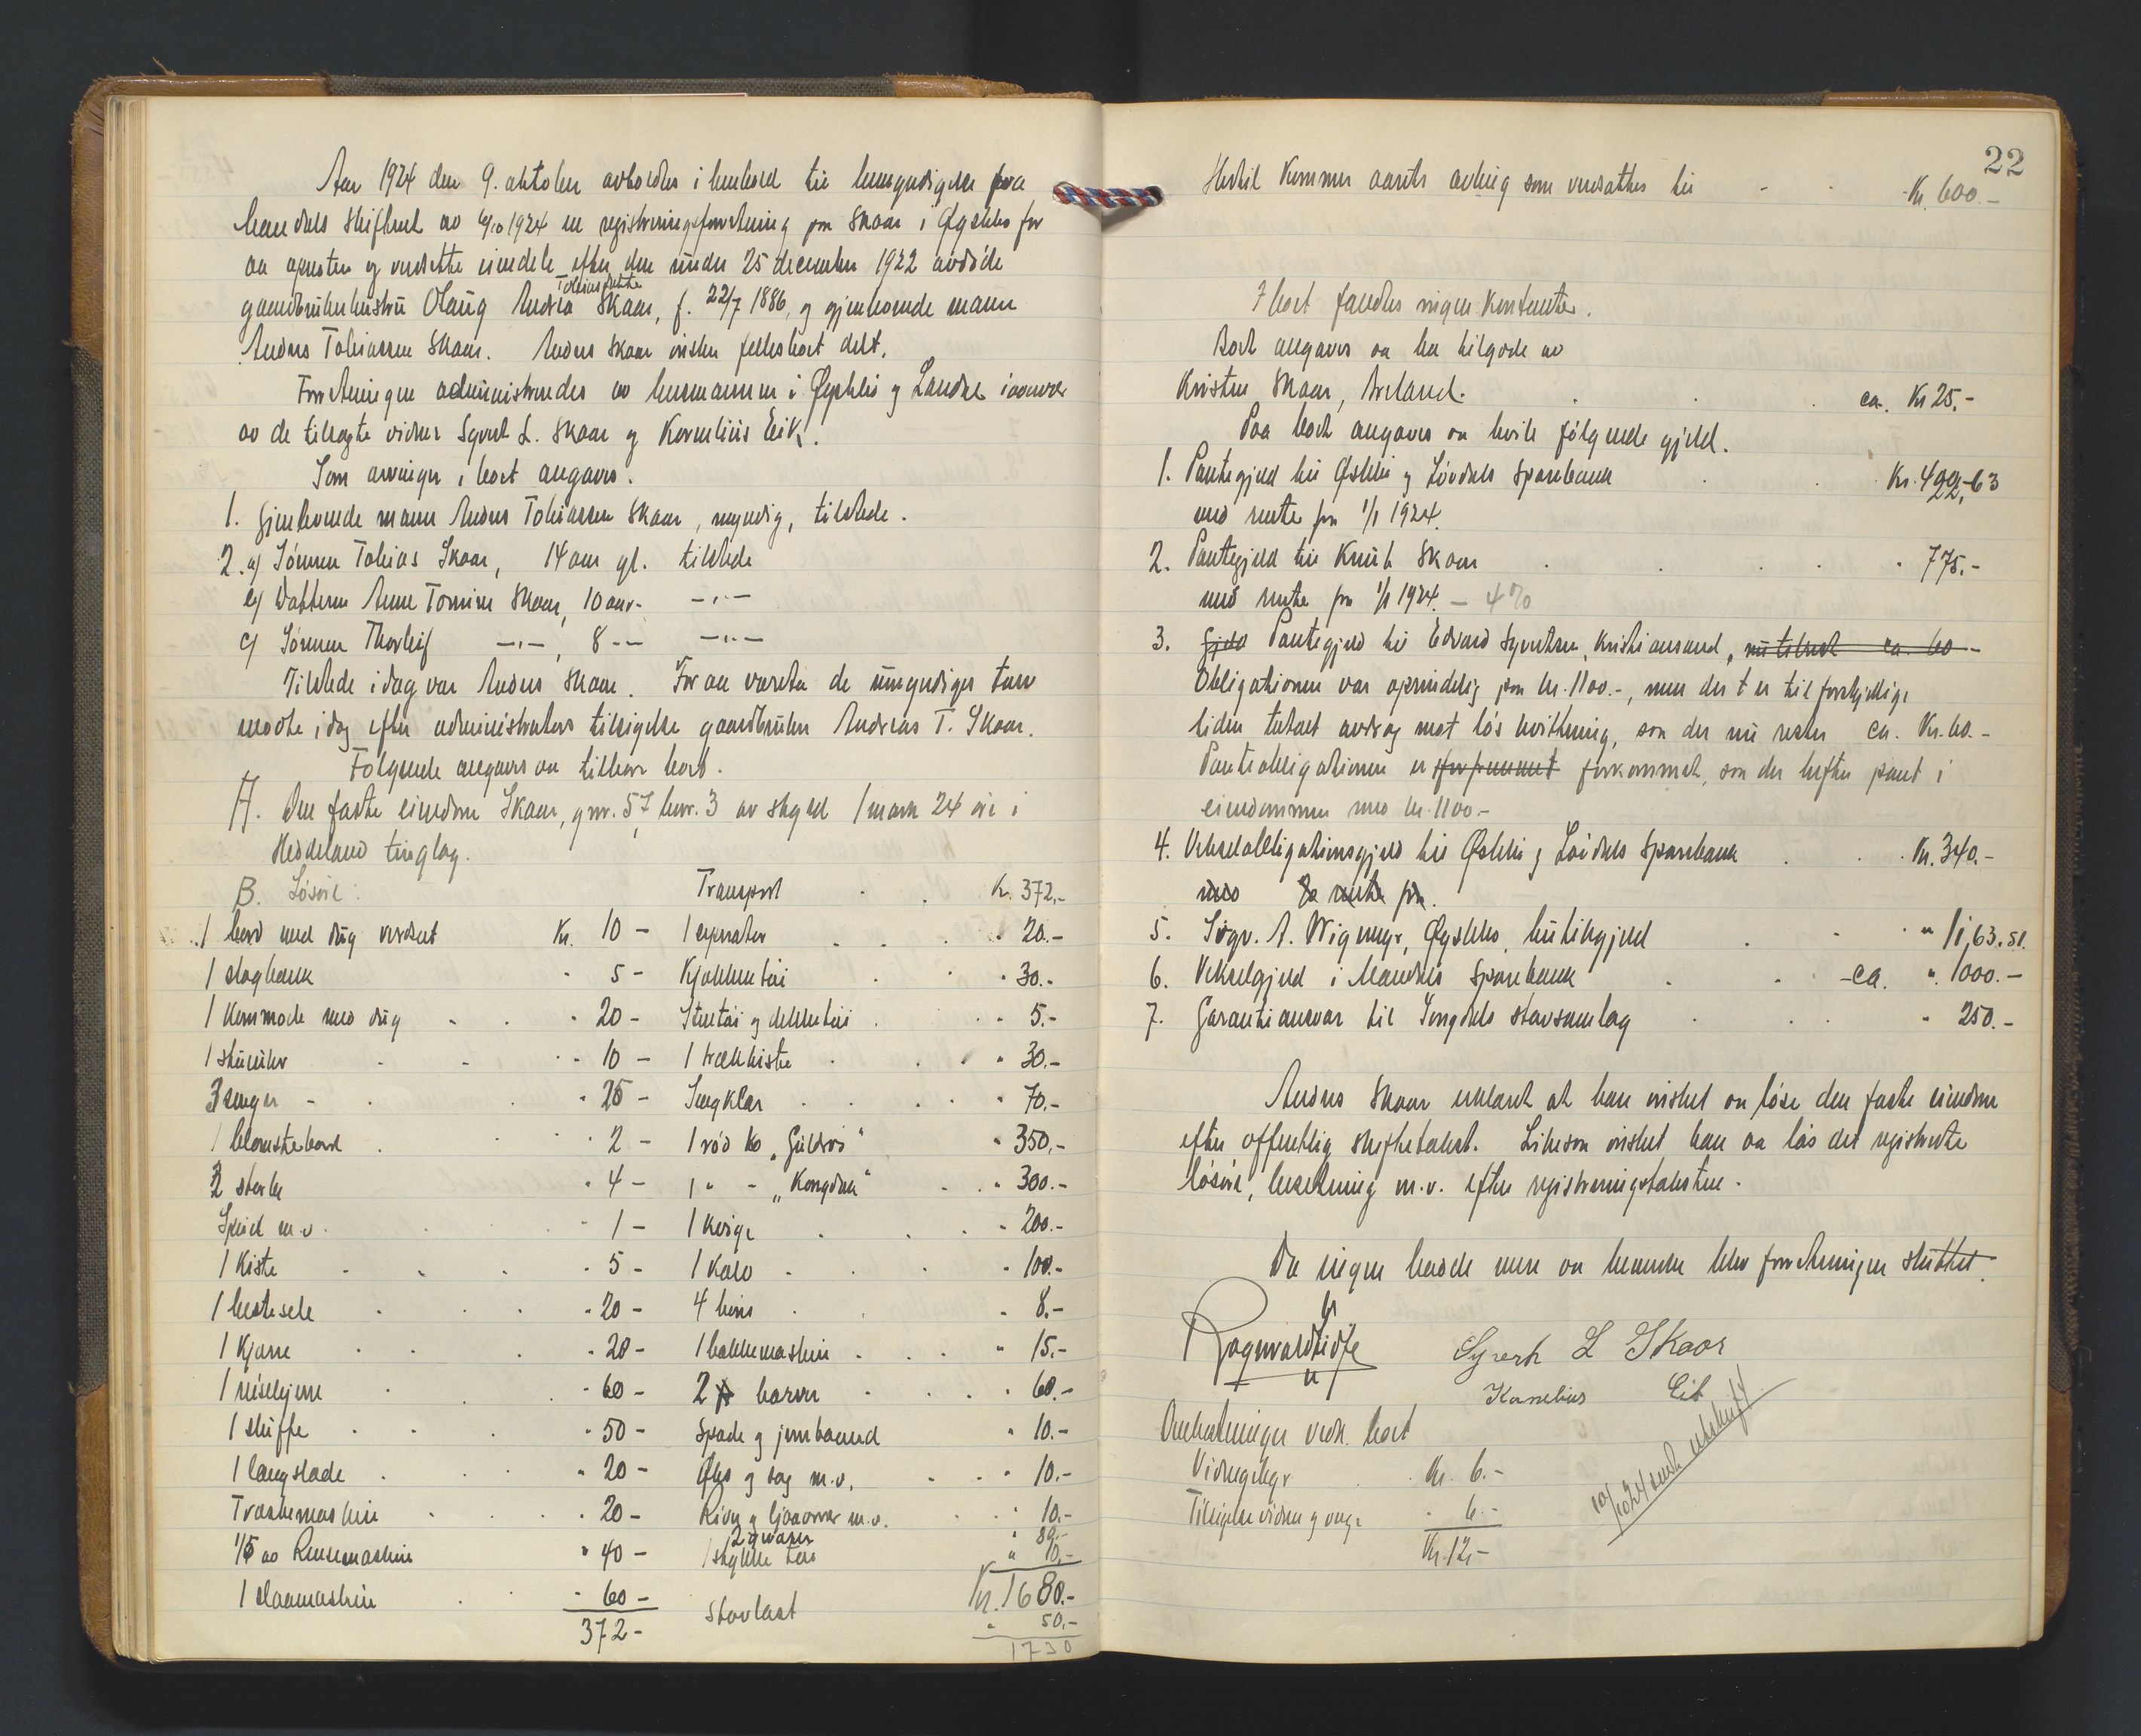 Aar 1924 den 9. oktober avholdtes i henhold til bemyndigelse fra
Mandals skifteret av 4/10 1924 en registreringsforretning paa Skaar i Øyslebø for
aa opnotere og verdsette eiendele efter den under 25 december 1922 avdøde
gaardbrukerhustru Olaug Andrea Tobiasdatter Skaar, f. 22/7 1886, og gjenlevende mann
Anders Tobiassen Skaar. Anders Skaar ønsker fellesboet delt.
Forretningen administrertes av lensmannen i Øyslebø og Laudal i overvær
av de tilsagte vidner Syvert L. Skaar og Kornelius Eik.
Som arvinger i boet angaves.
1. Gjenlevende mann Anders Tobiassen Skaar, myndig, tilstede.
2. a) Sønnen Tobias Skaar, 14 aar gl. tilstede
b) Datteren Anne Tomine Skaar, 10 aar - -"-
c) Sønnen Thorleif -"-, 8 -- -"-
Tilstede idag var Anders Skaar. For aa vareta de umyndiges tarv
møtte idag efter administrators tilsigelse gaardbruker Andreas T. Skaar.
Følgende angaves aa tilhøre boet.
A. Den faste eiendom Skaar, gnr. 57, bnr. 3 av skyld 1 mark 24 øre i
Hesseland tinglag.
B. Løsøre:
1 bord med dug verdsat Kr. 10 -
1 slagbenk " 5 -
1 kommode med dug " 20 -
1 stueuhr " 10 -
3 senger - " 25 -
1 blomsterbord " 2 -
2 stoler " 4 -
Speil m.v. " 1 -
1 kiste " 5 -
1 hestesele " 20 -
1 Kjærre " 20 -
1 reisekjerre " 60 -
1 sluffe " 50 -
1 langslæde " 20 -
Træskemaskin " 20 -
1/5 av Rensemaskin " 40 -
1 slaamaskin " 60 -
372 -
Transport Kr. 372,-
1 seperator " 20.-
Kjøkkentøi " 30.-
Stentøi og dekketøi " 5.-
1 trækkiste " 30.-
Sengklær " 70.-
1 rød ko "Guldros" " 350,-
1 " - "Kongdau" " 300.-
1 kvige " 200.-
1 kalv " 100.-
4 høns " 8.-
1 hakkemaskin " 15.-
2 harver " 60.-
Spade og jernbaand " 10.-
Øks og sag m.v. " 10.-
River og ljaaorver m.v. " 10.-
2 grisser " 80.-
1 stykke tøi " 10,-
Kr. 1680.-
Stavlast " 50,-
1730
22
Hertil kommer aarets avling som verdsattes til Kr. 600.-
I boet fandtes ingen kontanter.
Boet angaves aa ha tilgode av
Kristen Skaar, Ireland. ca. Kr 25.-
Paa boet angaves aa hvile følgende gjeld.
1. Pantegjeld til Øslebø og Løvdals Sparebank Kr. 499,63
med rente fra 1/1 1924.
2. Pantegjeld til Knut Skaar " 775.-
med rente fra 1/1 1924. - 4%
3. Gjeld Pantegjeld til Edvard Syvertsen, Kristiansand, nu tilrest ca. 60 -
Obligationen var oprindelig paa kr. 1100.-, men der er til forskjellige
tider betalt avdrag mot løs kvittering, saa der nu rester ca. Kr. 60.-
Panteobligationen er forkommet, saa der hefter pant i
eiendommen med kr. 1100.-
4. Vekselobligationsgjeld til Øslebø og Løvdals Sparebank Kr. 340.-
med rente fra.
5. Sigv. A. Wigemyr, Øyslebø, butikgjeld " 163.51.
6. Vekselgjeld i Mandals Sparebank - ca. " 1000.-
7. Garantiansvar til Songdals stavsamlag " 250.-
Anders Skaar erklærte at han ønsket aa løse den faste eiendom
efter offentlig skiftetakst. Likesaa ønsket han aa løse det registrerte
løsøre, besetning m.v. efter registreringstaksten.
Da ingen hadde mere aa bemerke blev forretningen sluttet.
Syvert L Skaar
Kornelius Eik
Omkostninger vedk. boet
Vidnegebyr Kr. 6.-
Tilsigelse vidner og verge " 6.-
Kr. 12,-
10/10 24 sendt utskrift